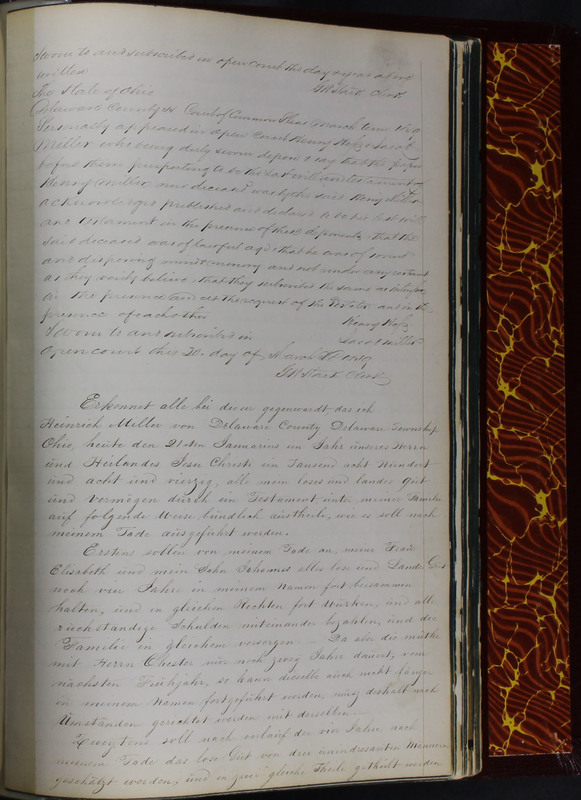 Sworn to and subscribed in open court the day & year above
written
The State of Ohio
Delaware County Court of Common Pleas March term
Personally appeared in open Court Henry &
Miller who being duly sworn depose & say that the paper
before them purporting to be the last will and testament of
Henry Miller now deceased was by the said Henry Miller
acknowledged published and declared to be his last will
and testament in the presence of these deponents that the
said deceased was of lawful age that he was of sound
and disposing mind & memory and not under any restraint
as they verily believe that they subscribed the same as witnesses
in the presence and at the request of the Testator and in the
presence of each other
Henry
Sworn to and subscribed in
Jacob Miller
Open court this 20 day of March
Clerk
Erkennet alle bei diesen gegenwardt das ich
Heinrich Miller von Delaware County Delaware Township
Ohio, heute den 21sten Januarius im Jahr unseres Herrn
und Heilandes Jesu Christi ein Tausend acht Hundert
und acht und vierzig, alle mein loses und landes Gut
und vermögen durch ein Testament unter meiner Familie
auf folgende Weise bündlich austheile, wie es soll nach
meinem Tode ausgeführt werden.
Erstens sollen von meinem Tode an, meine Frau
Elisabeth und mein Sohn Johannes alles lose und Landes Gut
noch vier Jahre in meinem Namen fort beisammen
halten, und in gleichen Rechten fort würken, und alle
rückständige Schulden miteinander bezahlen, und die
Familie in gleichem versorgen – Da aber die mühle
mit Herrn Chester nur noch zwey Jahre dauert, vom
nächsten Frühjahr, so kann dieselbe auch nicht länger
in meinem Namen fortgeführt werden, muss deshalb nach
Umständen gerechtet werden mit derselben –
Zweytens soll nach verlauf der vier Jahre nach
meinem Tode das lose Gut von drei Männern
geschätzt werden, und in zwei gleiche Theile getheilt werden